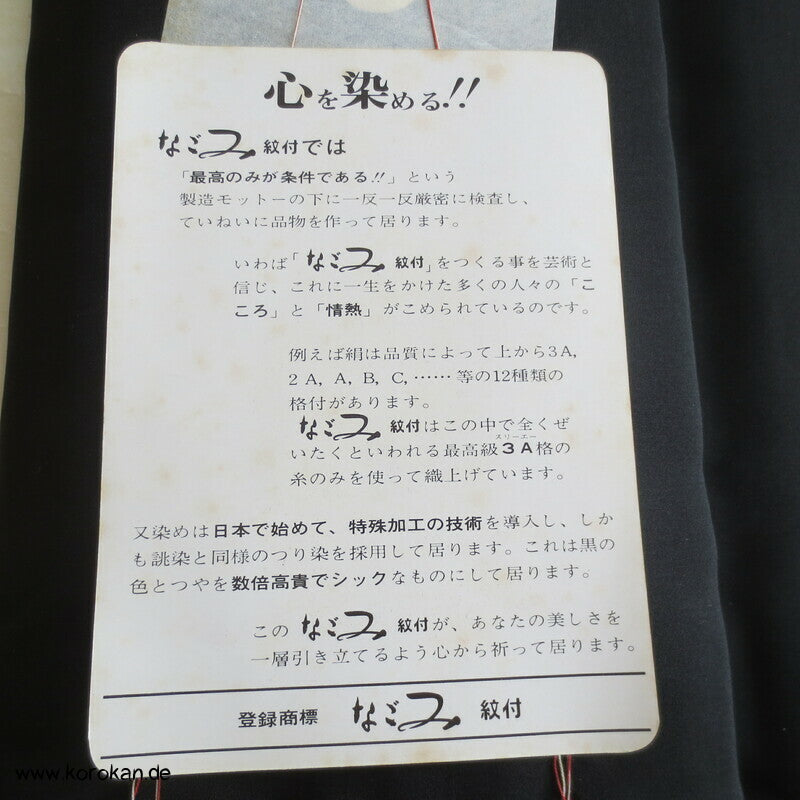 心を染める!!
なごみ紋付では
「最高のみが条件である!!」という
製造モットーの下に一反一反厳密に検査し、
ていねいに品物を作って居ります。
いわば「なごみ紋付」をつくる事を芸術と
信じ、これに一生をかけた多くの人々の「こ
ころ」と「情熱」がこめられているのです。
例えば絹は品質によって上から3A,
2A, A, B, C, ……等の12種類の
格付があります。
なごみ紋付はこの中で全くぜ
スリーエー
いたくといわれる最高級3A格の
糸のみを使って織上げています。
又染めは日本で始めて、特殊加工の技術を導入し、しか
も誂染と同様のつり染を採用して居ります。これは黒の
色とつやを数倍高貴でシックなものにして居ります。
このなごみ紋付が、あなたの美しさを
一層引き立てるよう心から祈って居ります。
登録商標 なごみ 紋付
www.korokan.de